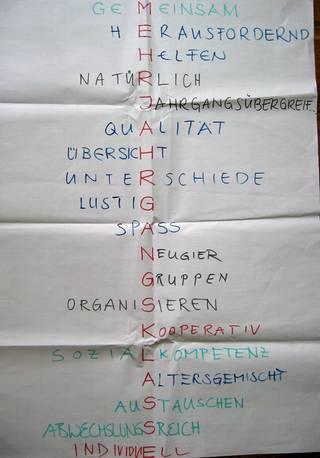 GEMEINSAM
HERAUSFORDERND
HELFEN
NATÜRLICH
JAHRGANGSÜBERGREIF..
QUALITÄT
ÜBERSICHT
UNTERSCHIEDE
LUSTIG
SPASS
NEUGIER
GRUPPEN
ORGANISIEREN
KOOPERATIV
SOZIALKOMPETENZ
ALTERSGEMISCHT
AUSTAUSCHEN
ABWECHSLUNGSREICH
INDIVIDUELL